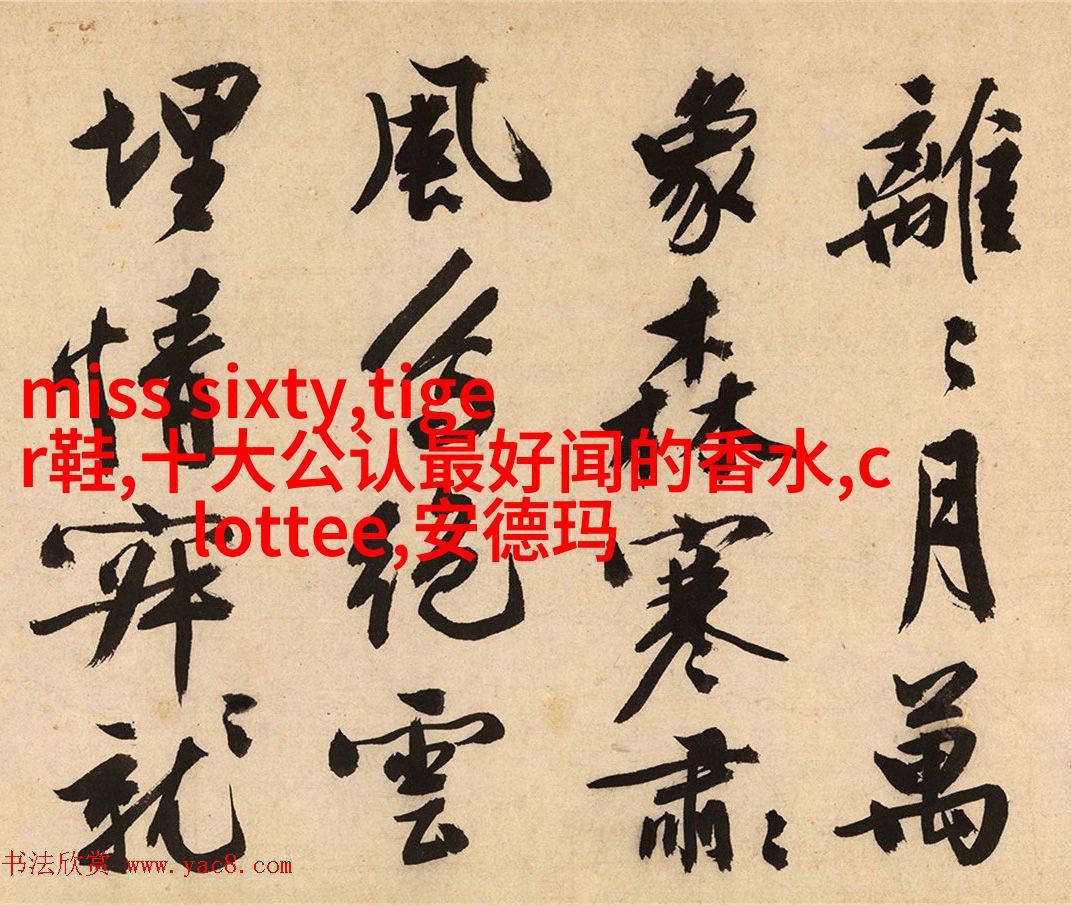 離〻月萬
象森寒肅〻
風絕雲
埋情
miss sixty,tige
r鞋,十大公认最好闻的香水,c
lottee,安德玛
书法欣赏 www.yac8.com